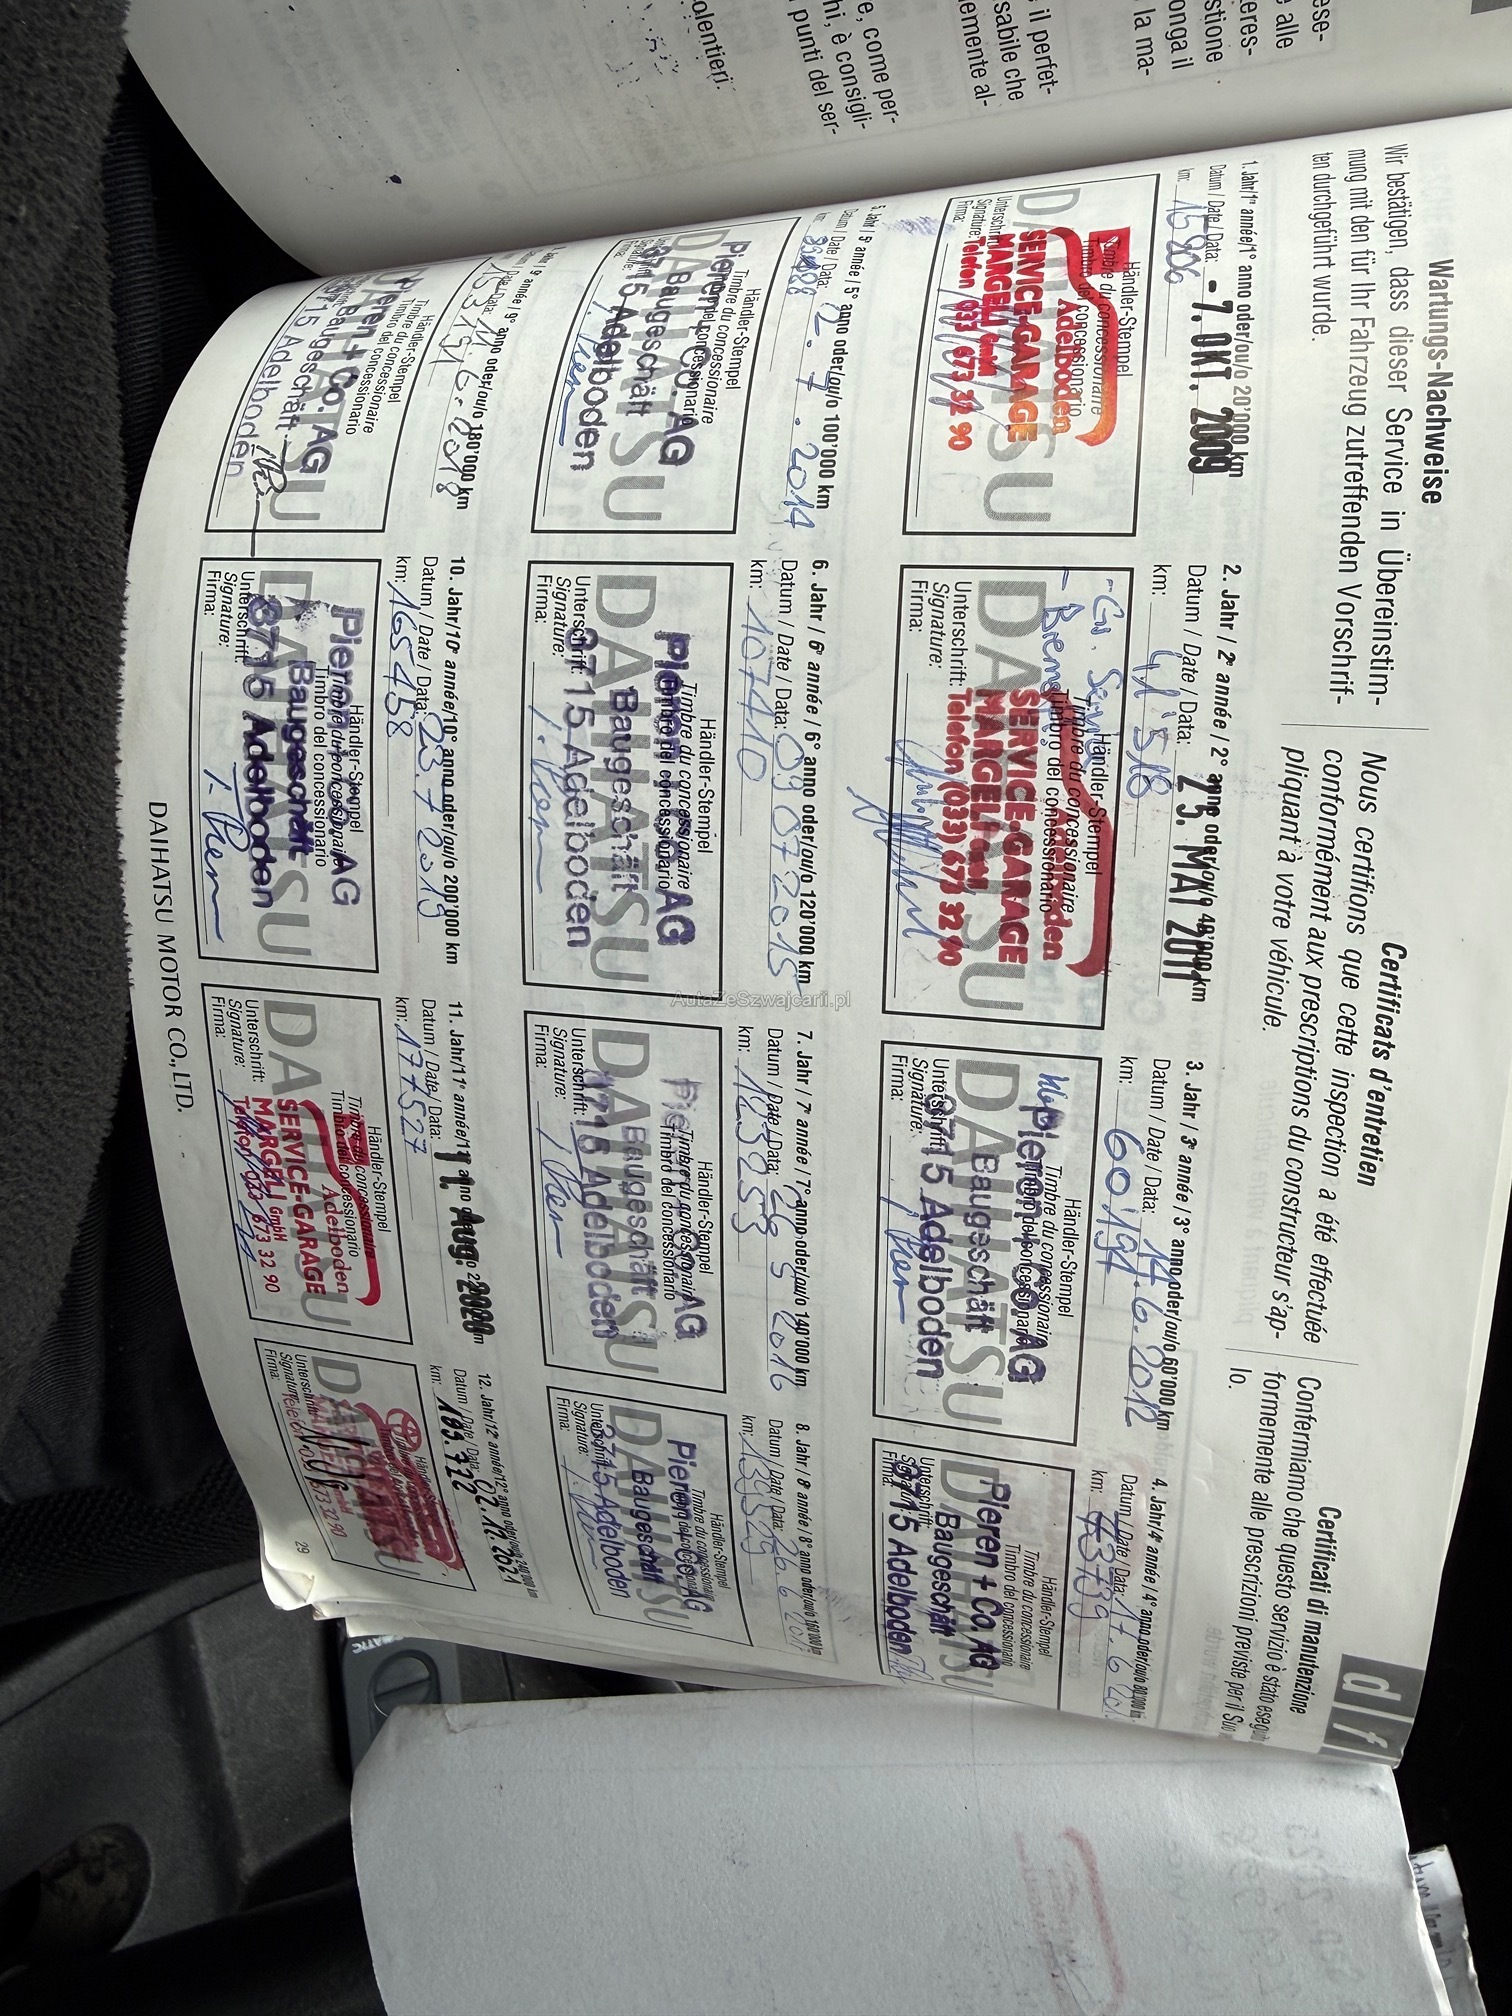 olentieri.
e, come per-
hi, è consigli-
punti del ser-
il perfet-
sabile che
emente al-
ese-
e alle
teres-
stione
onga il
la ma-
Wartungs-Nachweise
Wir bestätigen, dass dieser Service in Übereinstim-
mung mit den für Ihr Fahrzeug zutreffenden Vorschrif-
ten durchgeführt wurde.
Certificats d'entretien
Nous certifions que cette inspection a été effectuée
conformément aux prescriptions du constructeur s'ap-
pliquant à votre véhicule.
Certificati di manutenzione
Confermiamo che questo servizio è stato esegui
formemente alle prescrizioni previste per il Suo
lo.
d f
1. Jahr/1e année/1° anno oder/ou/o 20'000 km
Datum / Date / Data: - 7. OKT. 2009
km: 15'906
Händler-Stempel
Timbre du concessionaire
Timbro del concessionario
DAIHATSU
Adelboden
SERVICE-GARAGE
MARGELI GmbH
Telefon 033 673 32 90
Unterschrift:
Signature:
Firma:
2. Jahr / 2e année / 2° anno oder/ou/o 40'000 km
Datum / Date / Data: 25. MAI 2011
km: 41'518
Händler-Stempel
Timbre du concessionaire
Timbro del concessionario
DAIHATSU
SERVICE-GARAGE
Telefon (033) 673 32 90
Unterschrift:
Signature:
Firma:
3. Jahr / 3e année / 3° anno oder/ou/o 60'000 km
Datum / Date / Data: 14.6.2012
km: 60'191
Händler-Stempel
Timbre du concessionaire
Timbro del concessionario
DAIHATSU
Pieren + Co. AG
Baugeschäft
3715 Adelboden
Unterschrift:
Signature:
Firma:
4. Jahr/4e année / 4° anno oder/ou/o 80'000 km
Datum / Date / Data: 17.6.201
km: 73739
Händler-Stempel
Timbre du concessionaire
Timbro del concessionario
DAIHATSU
Pieren + Co. AG
Baugeschäft
3715 Adelboden
Unterschrift:
Signature:
Firma:
5. Jahr / 5e année / 5° anno oder/ou/o 100'000 km
Datum / Date / Data: 2.7.2014
km:
Händler-Stempel
Timbre du concessionaire
Timbro del concessionario
DAIHATSU
Pieren + Co. AG
Baugeschäft
3715 Adelboden
6. Jahr / 6e année / 6° anno oder/ou/o 120'000 km
Datum / Date / Data: 09 07 2015
km: 107410
Händler-Stempel
Timbre du concessionaire
Timbro del concessionario
DAIHATSU
Pieren + Co. AG
Baugeschäft
3715 Adelboden
Unterschrift:
Signature:
Firma:
7. Jahr / 7e année / 7° anno oder/ou/o 140'000 km
Datum / Date / Data: 2016
km: 123253
Händler-Stempel
Timbre du concessionaire
Timbro del concessionario
DAIHATSU
Baugeschäft
3715 Adelboden
Unterschrift:
Signature:
Firma:
8. Jahr / 8e année / 8° anno oder/ou/o 160'000 km
Datum / Date / Data:
km:
Händler-Stempel
Timbre du concessionaire
Timbro del concessionario
DAIHATSU
Pieren + Co. AG
Baugeschäft
3715 Adelboden
Unterschrift:
Signature:
Firma:
9e année / 9° anno oder/ou/o 180'000 km
Data: 11.6.2018
153151
Händler-Stempel
Timbre du concessionaire
Timbro del concessionario
DAIHATSU
Pieren + Co. AG
Baugeschäft
3715 Adelboden
10. Jahr/10e année/10° anno oder/ou/o 200'000 km
Datum / Date / Data: 23.7 2019
km: 165458
Händler-Stempel
Timbre du concessionaire
Timbro del concessionario
DAIHATSU
Pieren + Co. AG
Baugeschäft
3715 Adelboden
Unterschrift:
Signature:
Firma:
11. Jahr/11e année/11° anno
Datum / Date / Data: 11. Aug. 2020
km: 177527
Händler-Stempel
Timbre du concessionaire
Timbro del concessionario
DAIHATSU
Adelboden
SERVICE-GARAGE
MARGELI GmbH
Telefon 033 673 32 90
Unterschrift:
Signature:
Firma:
12. Jahr/12e année/12° anno oder/ou/o 240'000 km
Datum / Date / Data: 02.12.2021
km: 189.722
DAIHATSU
Unterschrift:
Signature:
Firma:
DAIHATSU MOTOR CO., LTD.
29
AutaZeSzwajcarii.pl